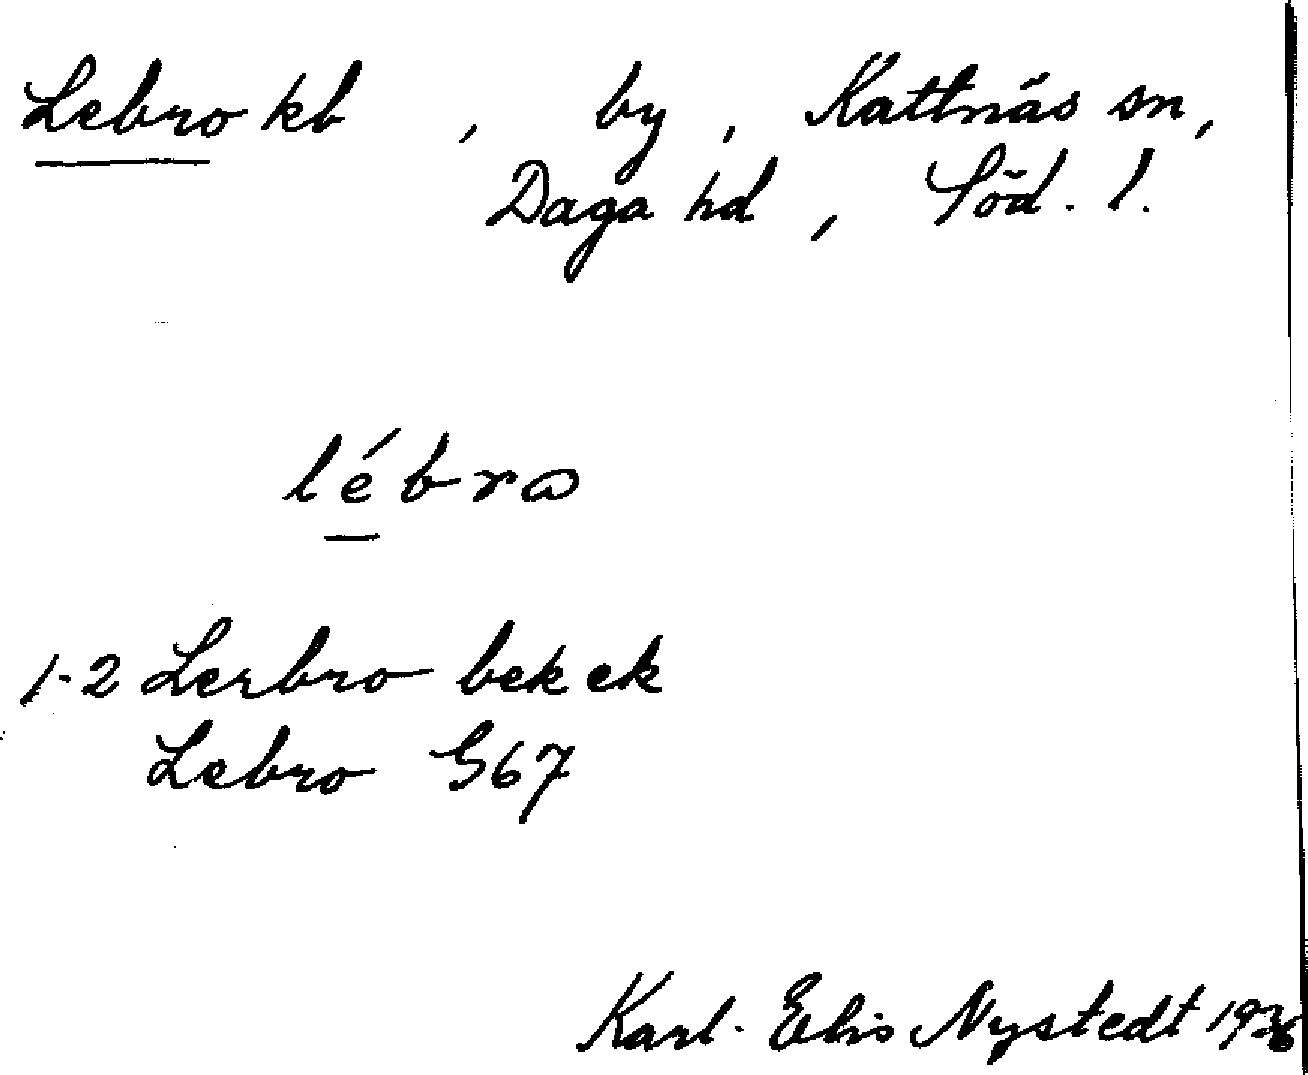 Lebro kb , by , Kattnäs sn,
Daga hd , Söd. l.
lébra
1-2 Lerbro bek ek
Lebro G67
Karl-Elis Nystedt 1936